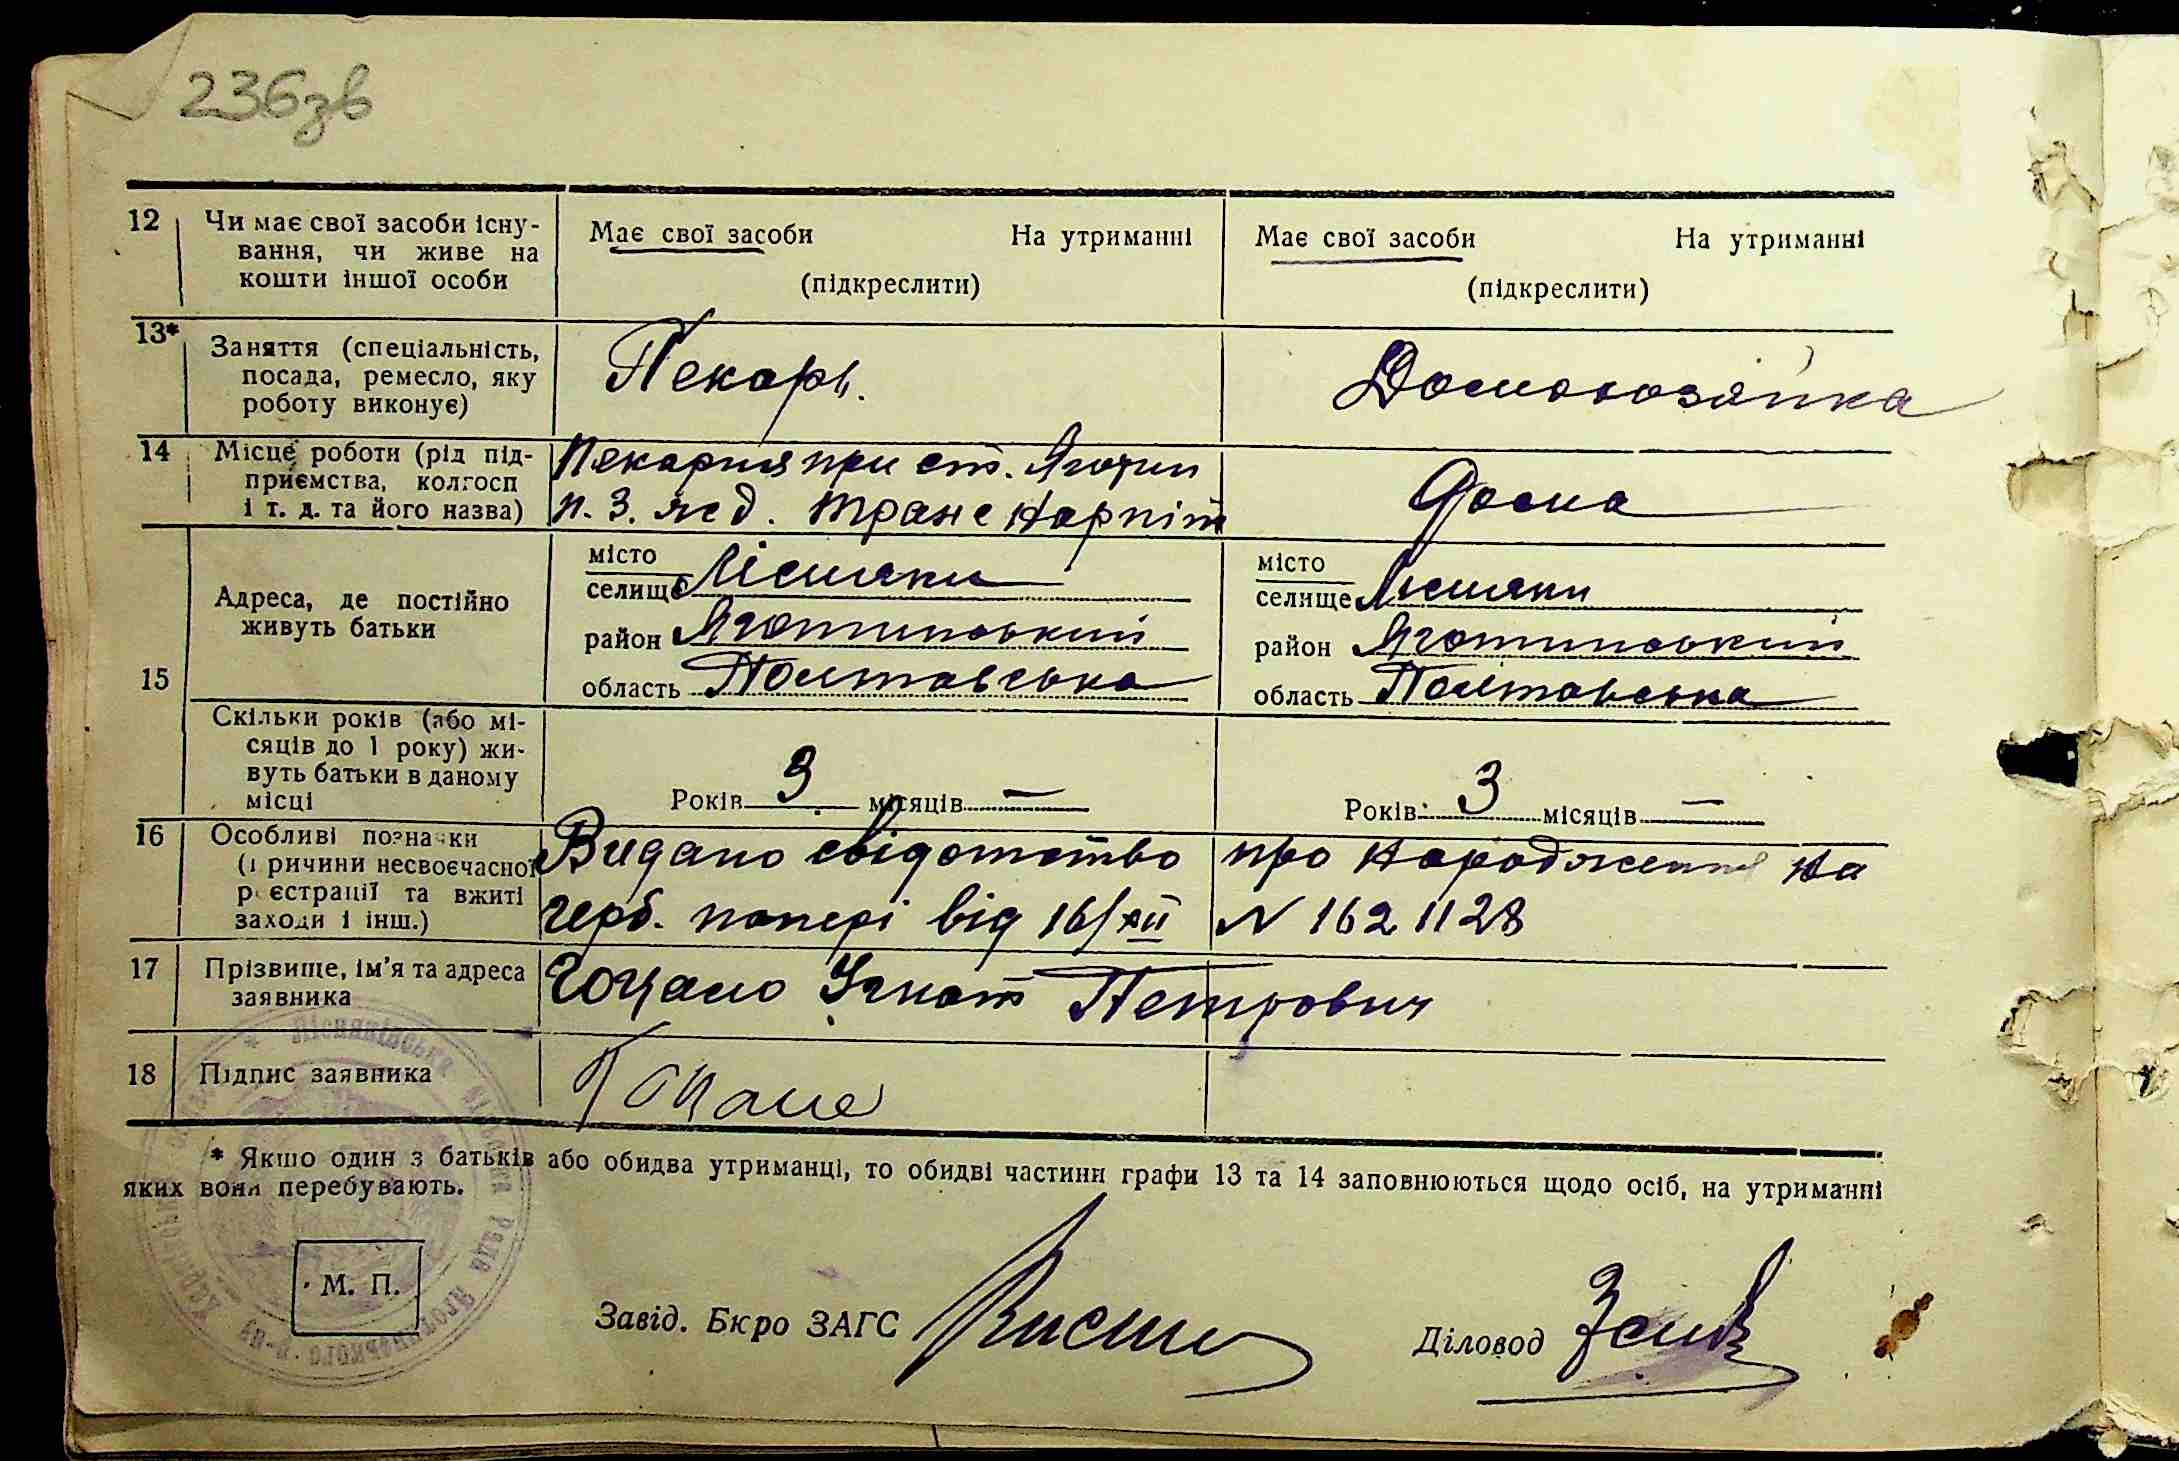 236зв
12 Чи має свої засоби існу- Має свої засоби На утриманні Має свої засоби На утриманні
вання, чи живе на
кошти іншої особи (підкреслити) (підкреслити)
13* Заняття (спеціальність, Пекарь. Домохозяйка
посада, ремесло, яку
роботу виконує)
14 Місце роботи (рід під- Пекарня при ст. Яготин Дома
приємства, колгосп
і т. д. та його назва) п. З. жед. Транс Нарпіт
15 Адреса, де постійно
живуть батьки
місто
селище Лісняки
район Яготинський
область Полтавська
місто
селище Лісняки
район Яготинський
область Полтавська
Скільки років (або мі-
сяців до 1 року) жи-
вуть батьки в даному
місці
Років 3 місяців — Років 3 місяців —
16 Особливі познаки Видано свідотство про народження на
(причини несвоєчасної
реєстрації та вжиті герб. папері від 16/XII N 1621128
заходи і інш.)
17 Прізвище, ім'я та адреса Гоцало Ігнат Петрович
заявника
18 Підпис заявника Гоцало
* Якшо один з батьків або обидва утриманці, то обидві частини графи 13 та 14 заповнюються щодо осіб, на утриманні
яких вони перебувають.
М. П.
Завід. Бюро ЗАГС
Діловод